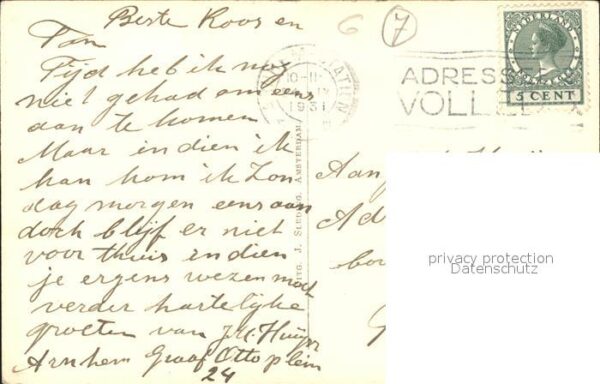 Beste Koos en
Fan
6 7
Tijd heb ik nog
niet gehad om eens
aan te komen
Maar indien ik
kan kom ik Zon
dag morgen eens aan
doch blijf er niet
voor thuis indien
je ergens wezen mot
verder hartelijke
groeten van J.H.
Arnhem Graaf Ottoplein
24
10-11
1931
ADRESS
VOLLE
NEDERLAND
5 CENT
UITG. J. SLEDING, AMSTERDAM
Aan
Ad
privacy protection
Datenschutz